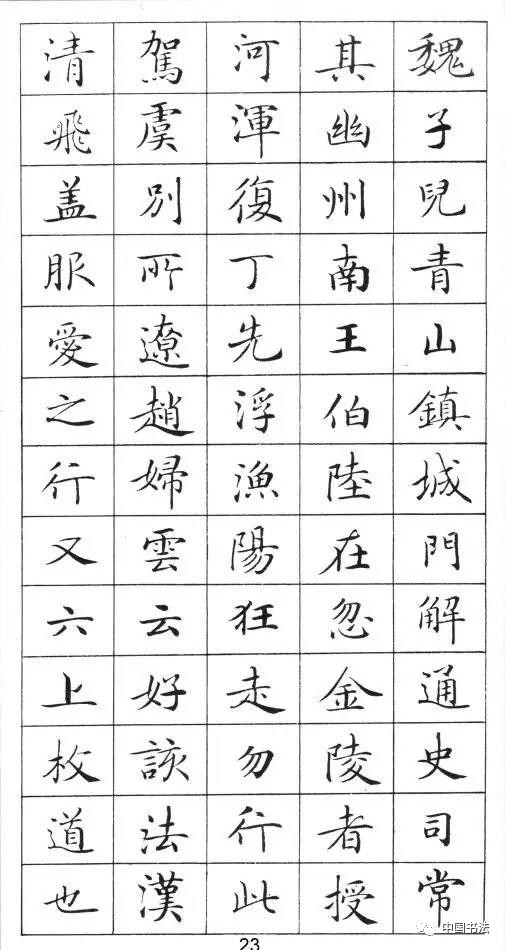 魏子兒青山鎮城門解通史司常
其幽州南王伯陸在忽金陵者授
河渾復丁先浮漁陽狂走勿行此
駕虞別所遼趙婦雲云好該法漢
清飛盖服愛之行又六上枚道也
23
中国书法